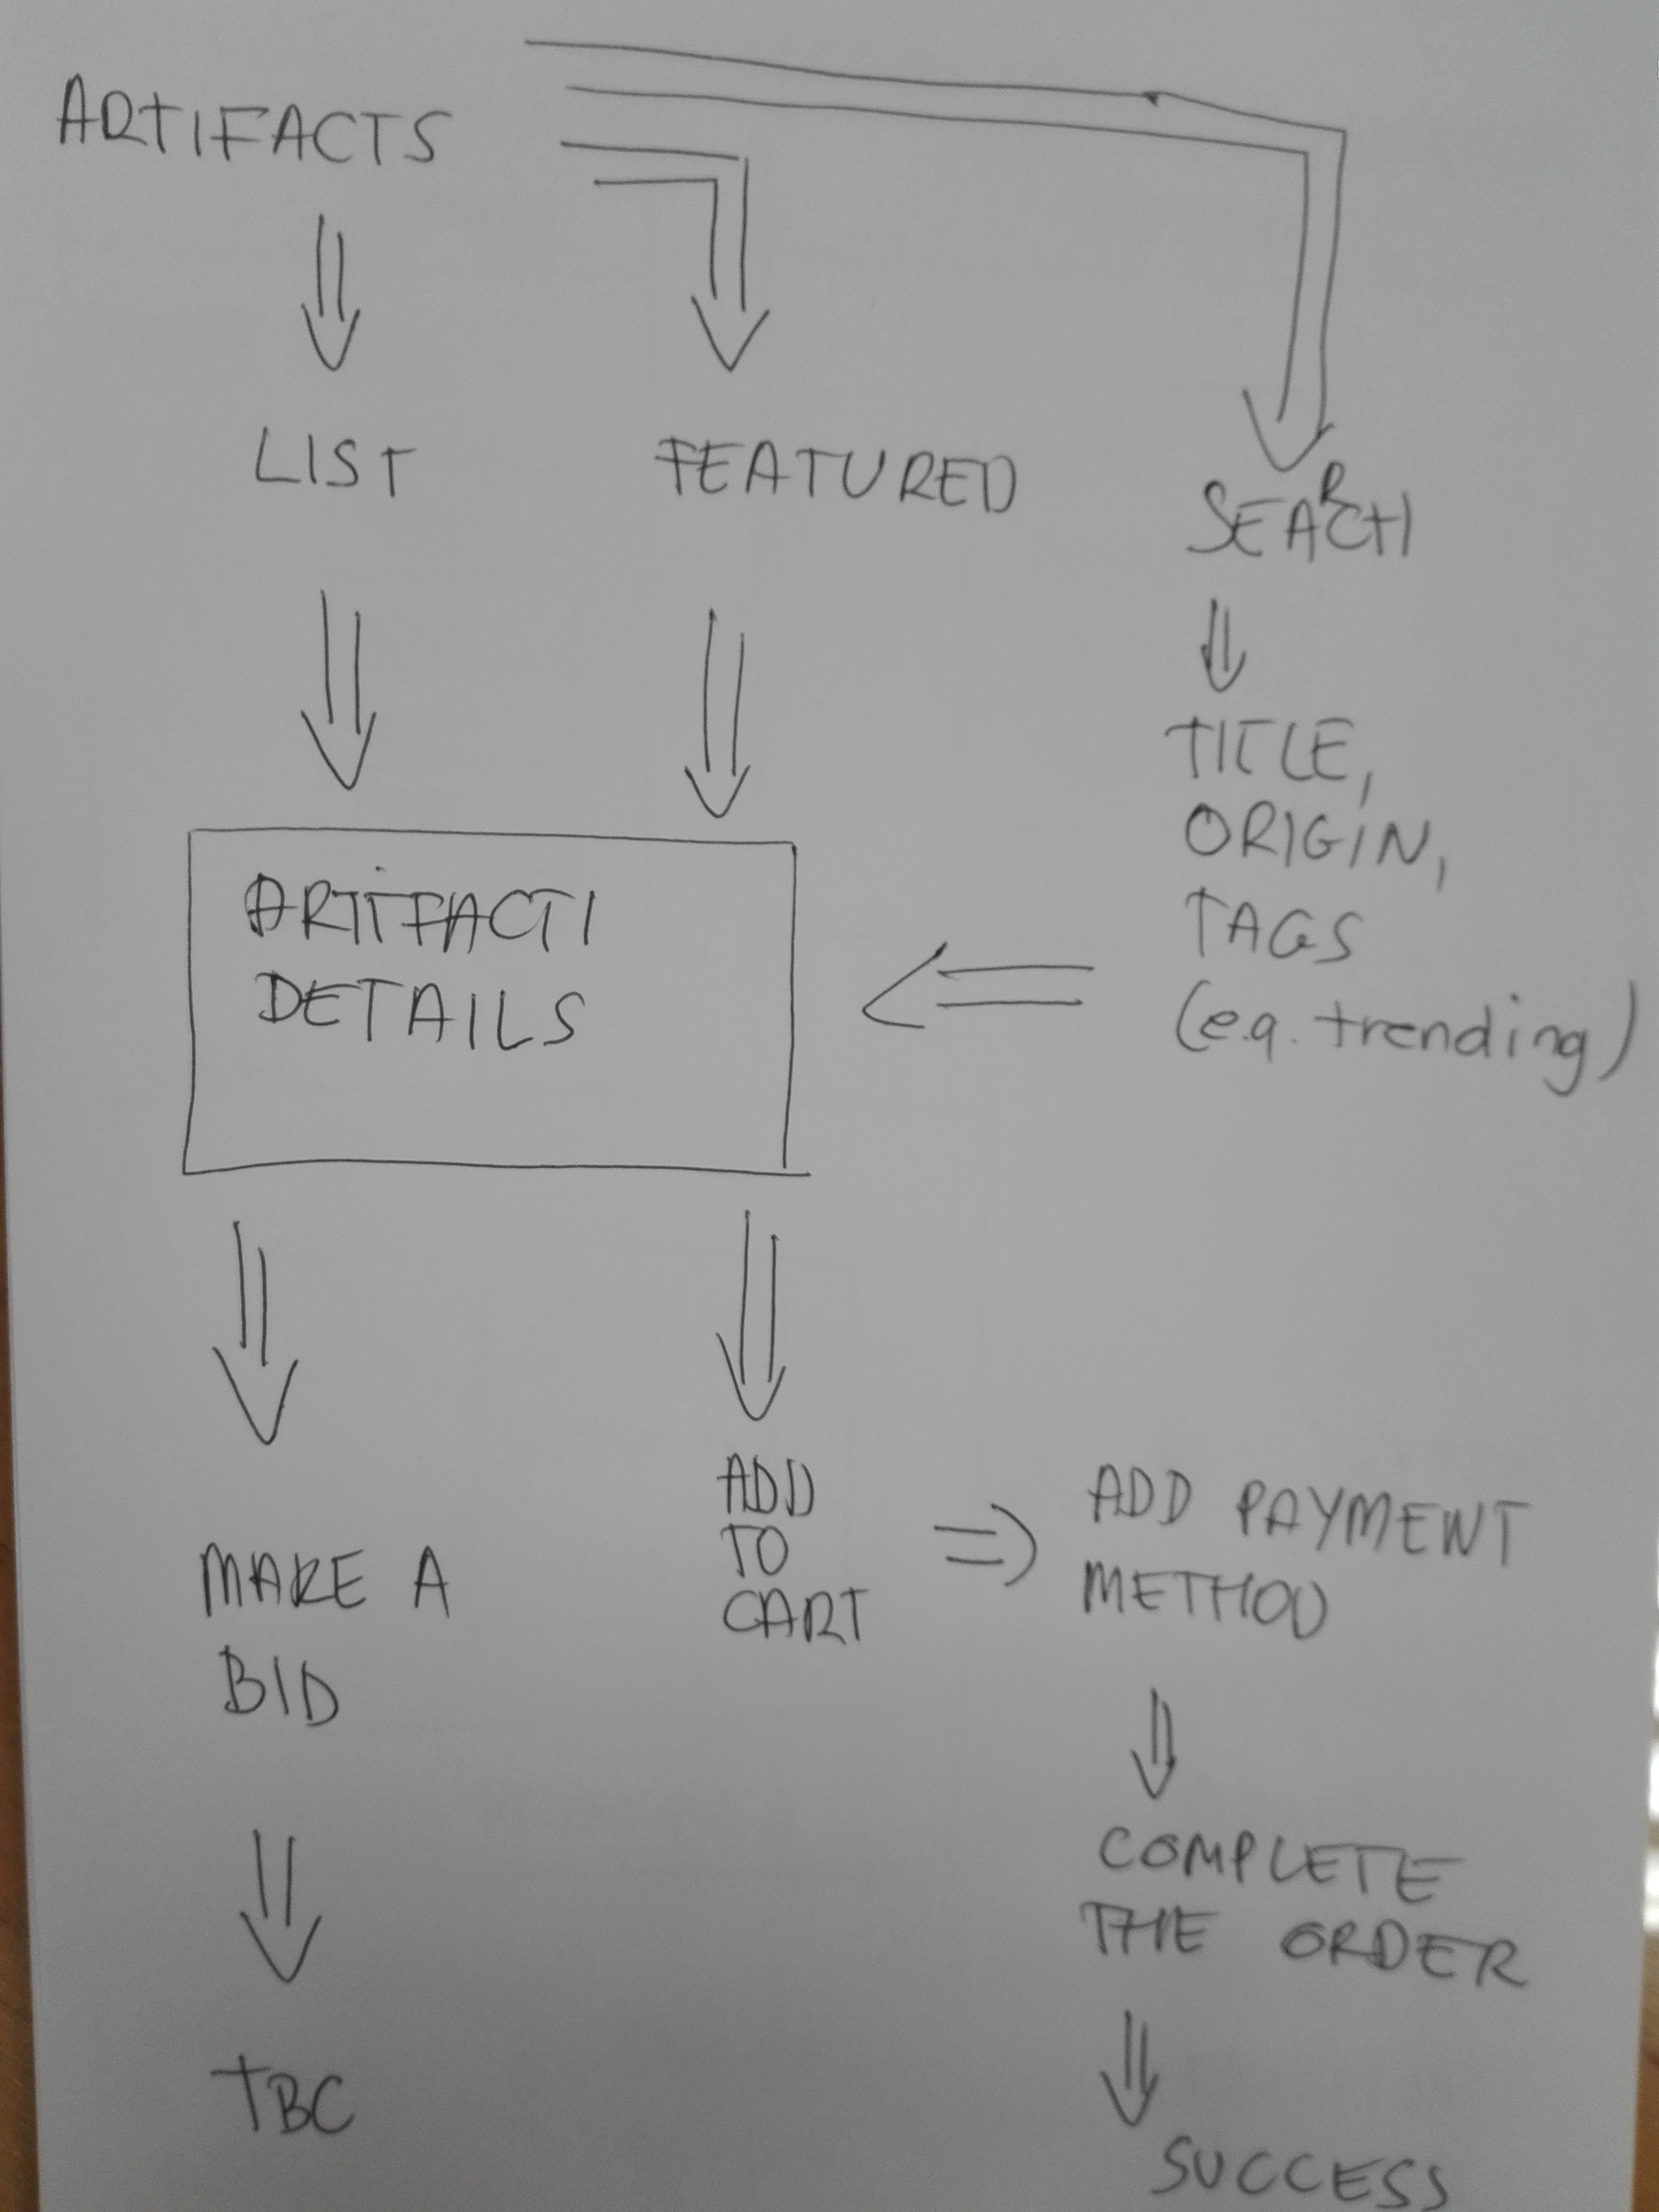 ARTIFACTS
LIST
FEATURED
SEARCH
TITLE,
ORIGIN,
TAGS
(e.g. trending)
ARTIFACT
DETAILS
MAKE A
BID
TBC
ADD
TO
CART
ADD PAYMENT
METHOD
COMPLETE
THE ORDER
SUCCESS